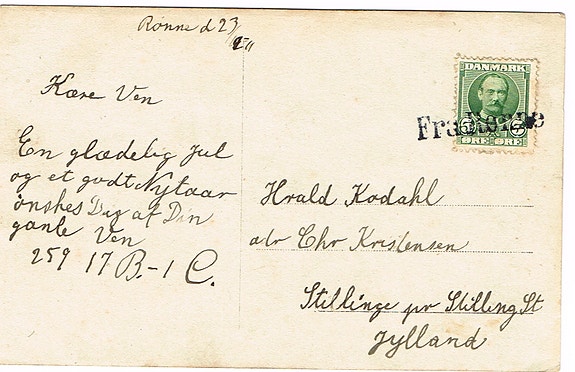 Rønne d 23/
Kære Ven
En glædelig Jul
og et godt Nytaar
ønskes Dig af Din
gamle Ven
259 17 B.-1 C.
DANMARK
5 5
ØRE ØRE
Fra Rønne
Hrald Kodahl
adr Chr Kristensen
Stillinge pr Stilling St
Jylland